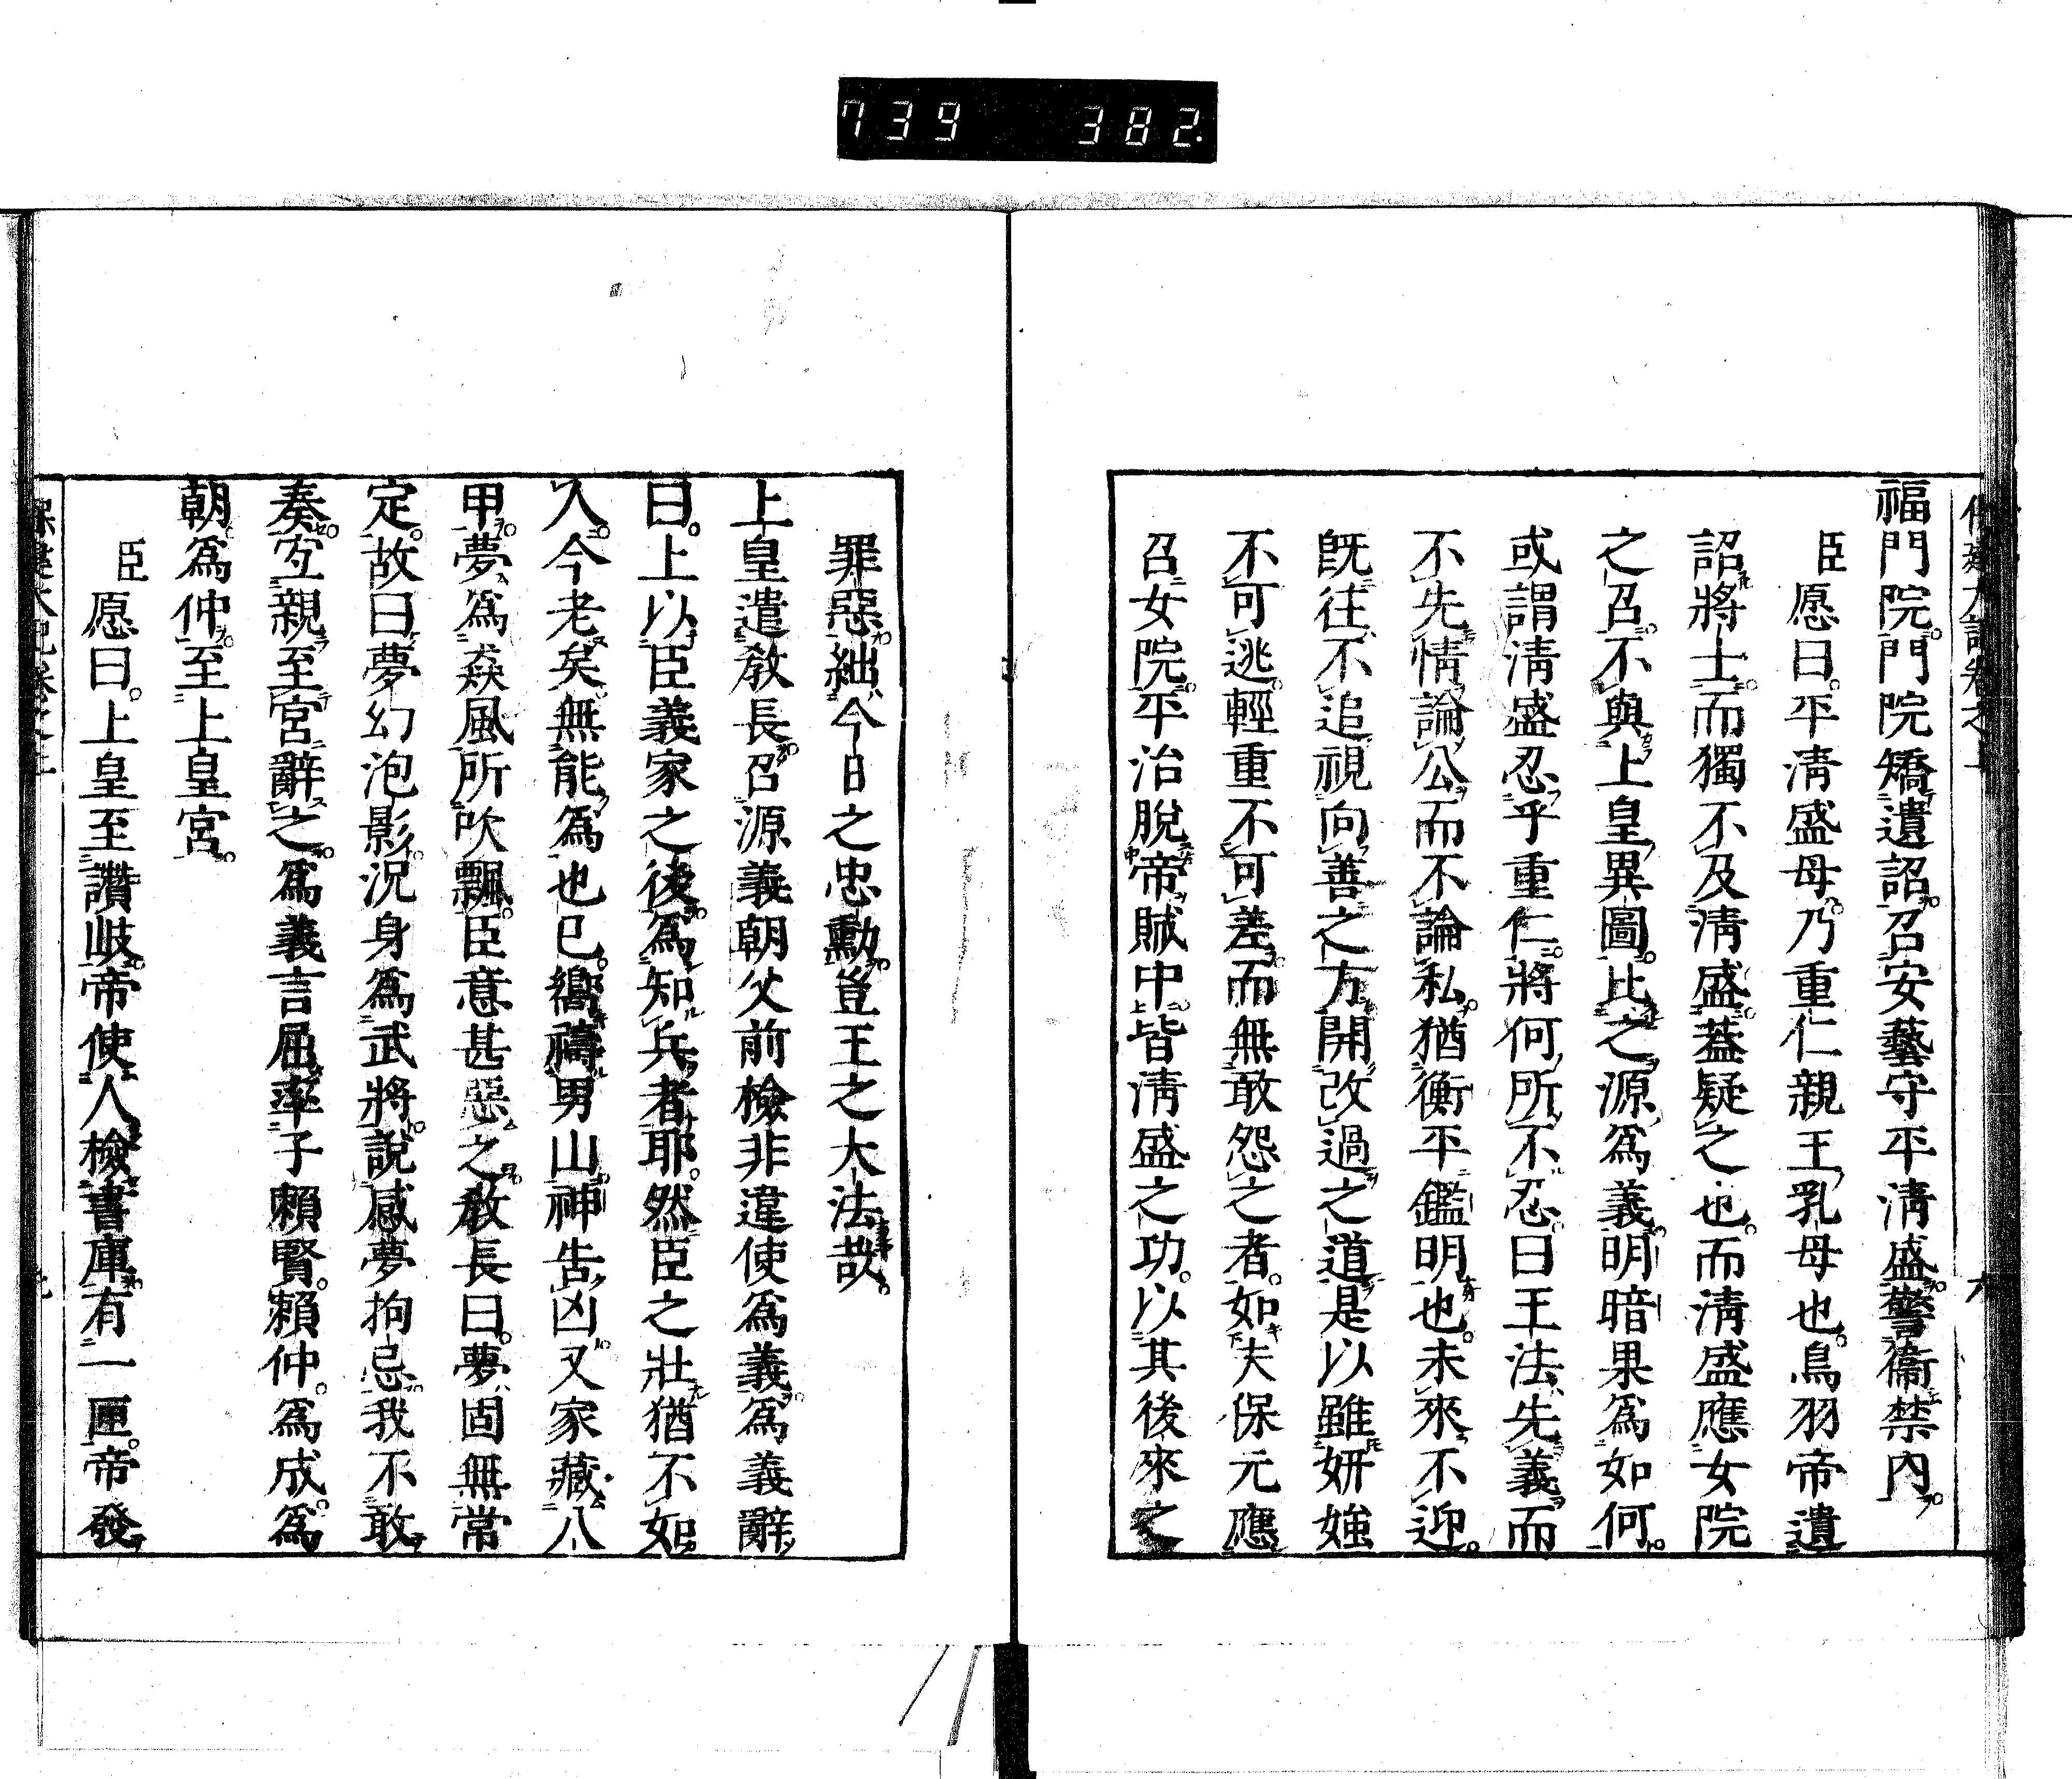 739 382
福門院門院矯遺詔召安藝守平淸盛警衞禁內
臣愿曰平淸盛母乃重仁親王乳母也鳥羽帝遺
詔將士而獨不及淸盛葢疑之也而淸盛應女院
之召不與上皇異圖比之源爲義明暗果爲如何
或謂淸盛忍乎重仁將何所不忍曰王法先義而
不先情論公而不論私猶衡平鑑明也未來不迎
旣往不追視向善之方開改過之道是以雖妍媸
不可逃輕重不可差而無敢怨之者如夫保元應
召女院平治脫帝賊中皆淸盛之功以其後來之
罪惡絀今日之忠勳豈王之大法哉
上皇遣敎長召源義朝父前檢非違使爲義爲義辭
曰上以臣義家之後爲知兵者耶然臣之壯猶不如
人今老矣無能爲也已嚮禱男山神告凶又家藏八
甲夢爲猋風所吹飄臣意甚惡之敎長曰夢固無常
定故曰夢幻泡影況身爲武將說感夢拘忌我不敢
奏宐親至宮辭之爲義言屈率子賴賢賴仲爲成爲
朝爲仲至上皇宮
臣愿曰上皇至讚岐帝使人檢書庫有一匣帝發